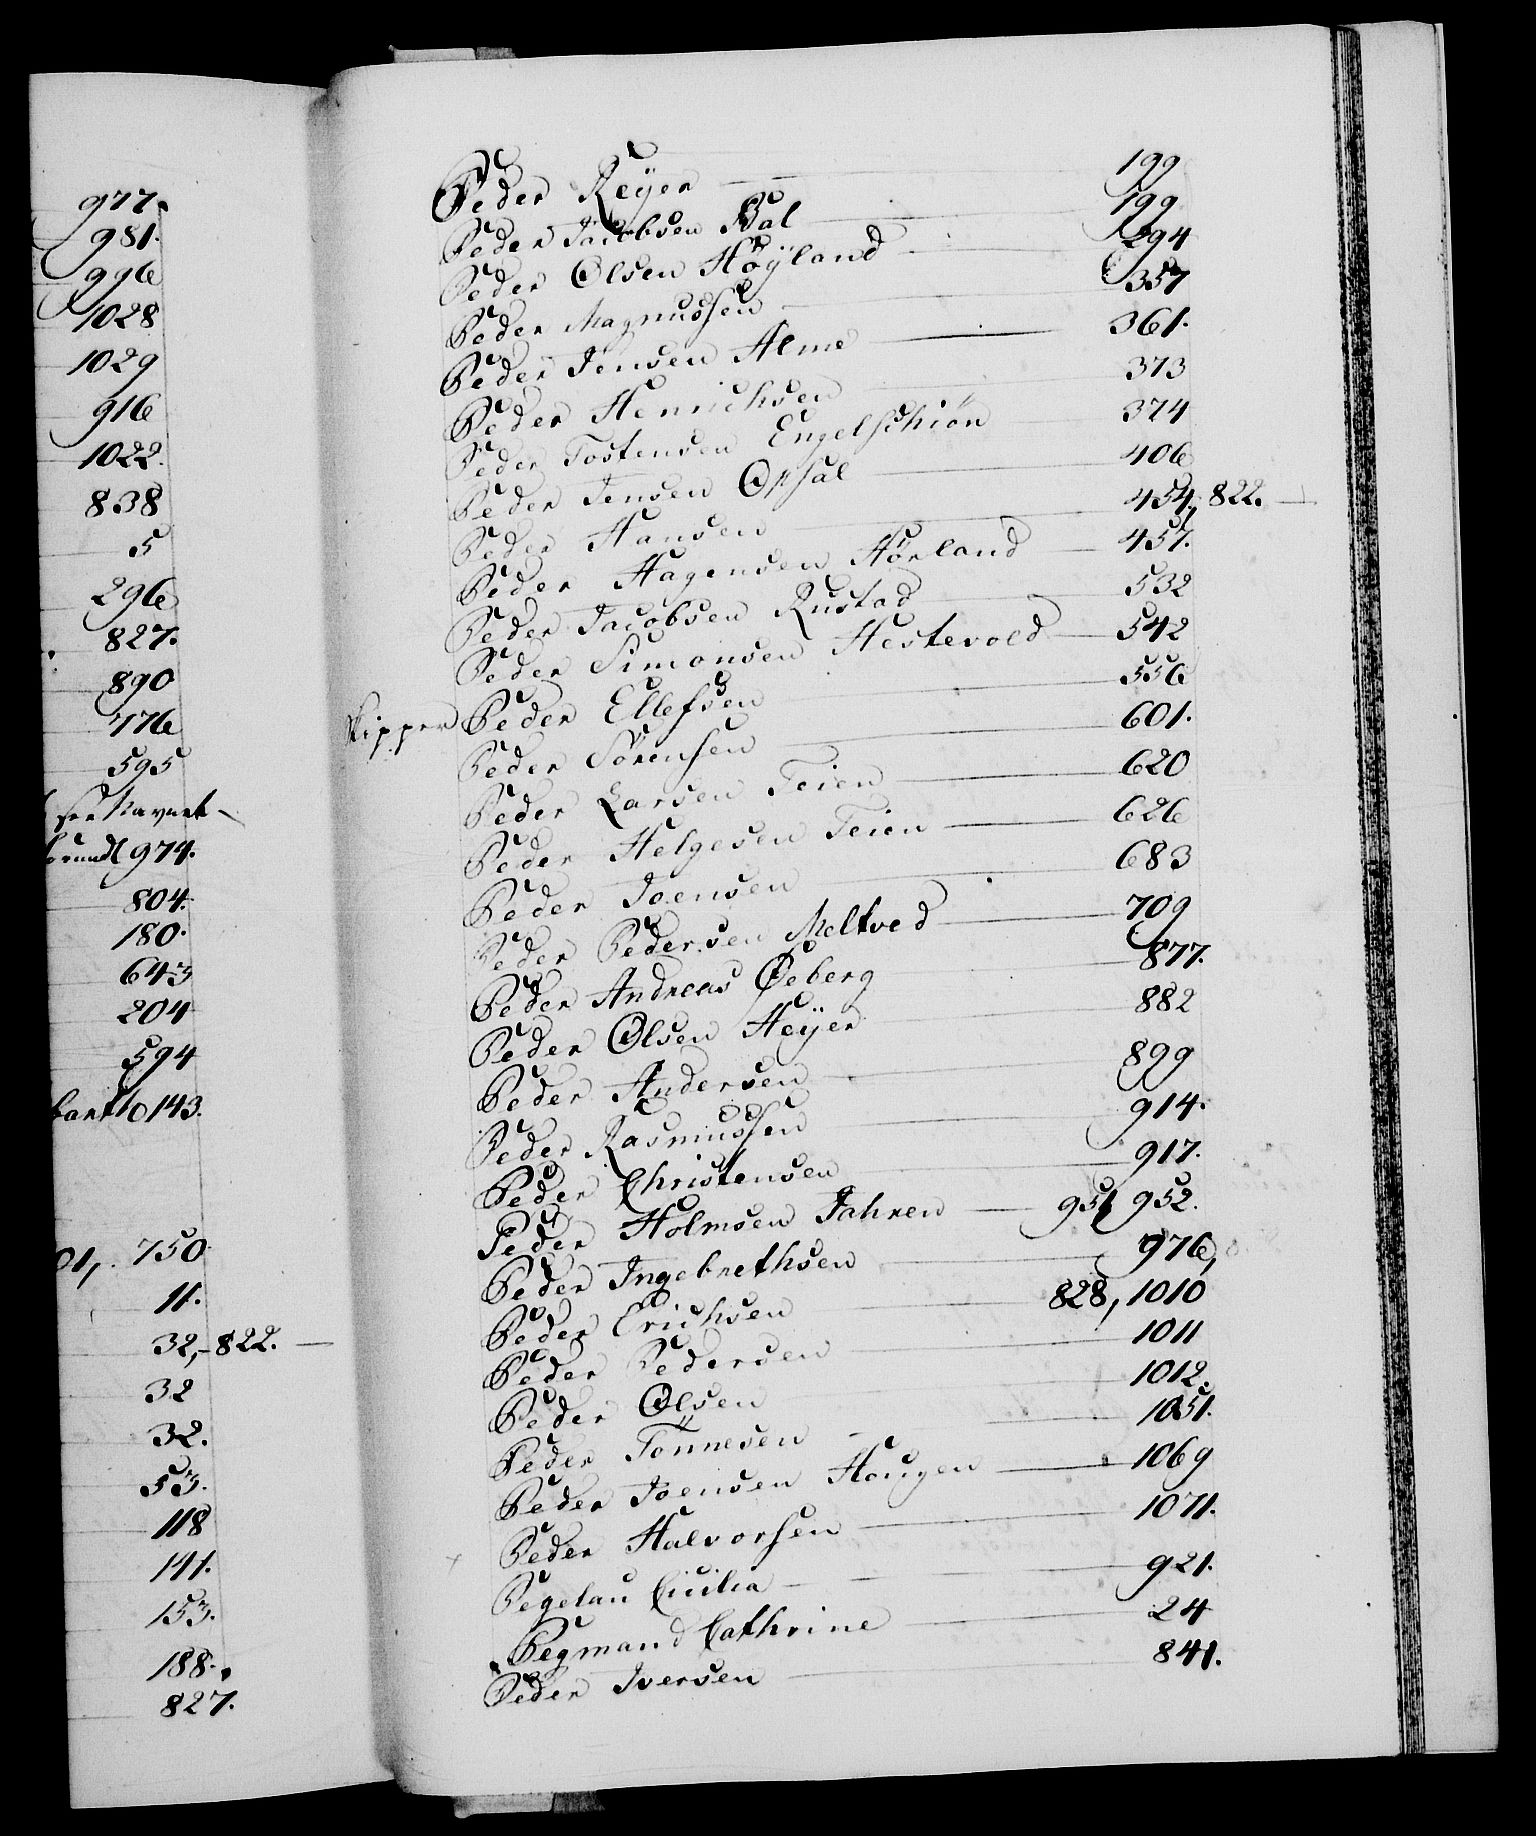 977.
981.
996
1028
1029
916
1022.
838
5
296
827.
890
776
595
see Navnet
974.
804.
180.
643
204
594
143.
01,. 750
11.
32,- 822.
32
32.
53.
118
141.
153.
188.
827.
Peder Reÿer — 199
Peder Jacobsen Bal — 199
Peder Olsen Höÿland — 294
Peder Magnussen — 357
Peder Jensen Alme — 361.
Peder Henrichsen — 373
Peder Tostensen Engelschiön — 374
Peder Jensen Opsal — 406
Peder Hansen — 454, 822.
Peder Hagensen Hörland — 457.
Peder Jacobsen Rustad — 532
Peder Simonsen Hestevold — 542
Skipper Peder Ellefsen — 556
Peder Sörensen — 601.
Peder Larsen Teien — 620
Peder Helgesen Teien — 626
Peder Joensen — 683
Peder Pedersen Meltved — 709
Peder Andreas Øeberg — 877.
Peder Olsen Heÿer — 882
Peder Andersen — 899
Peder Rasmussen — 914.
Peder Christensen — 917.
Peder Holmsen Jahren — 951 952.
Peder Ingebrethsen — 976,
Peder Erichsen — 828, 1010
Peder Pedersen — 1011
Peder Olsen — 1012.
Peder Tönnesen — 1051.
Peder Joensen Haugen — 1069
Peder Halvorsen — 1071.
Pegelau Cicilia — 921.
Pegmand Cathrine — 24
Peder Iversen — 841.